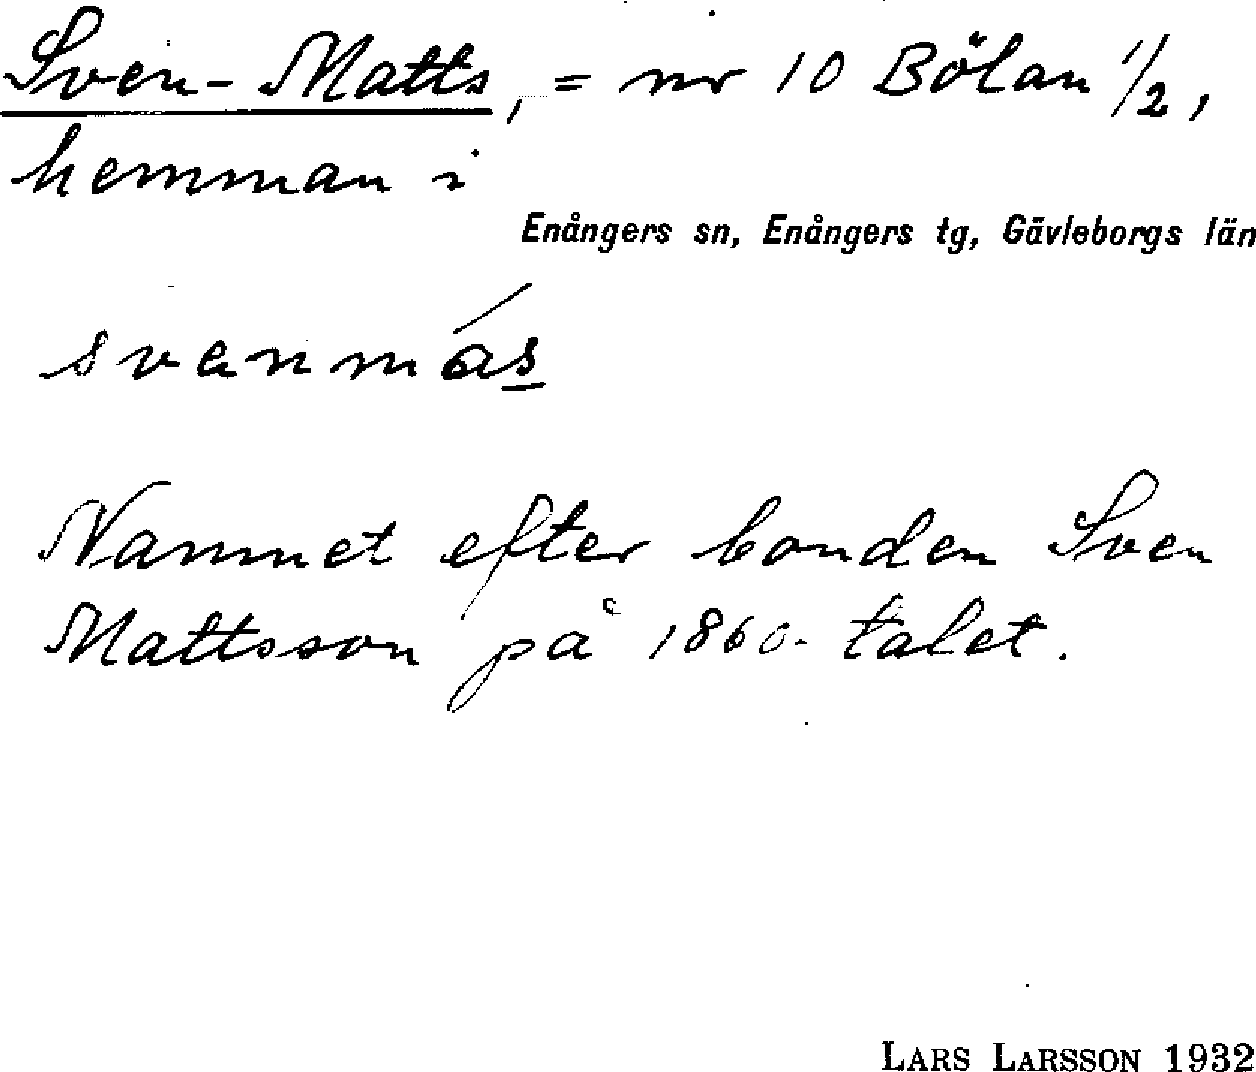 Sven-Matts, = nr 10 Bölan 1/2,
hemman i
Enångers sn, Enångers tg, Gävleborgs län
svenmás
Namnet efter bonden Sven
Mattsson på 1860-talet.
LARS LARSSON 1932